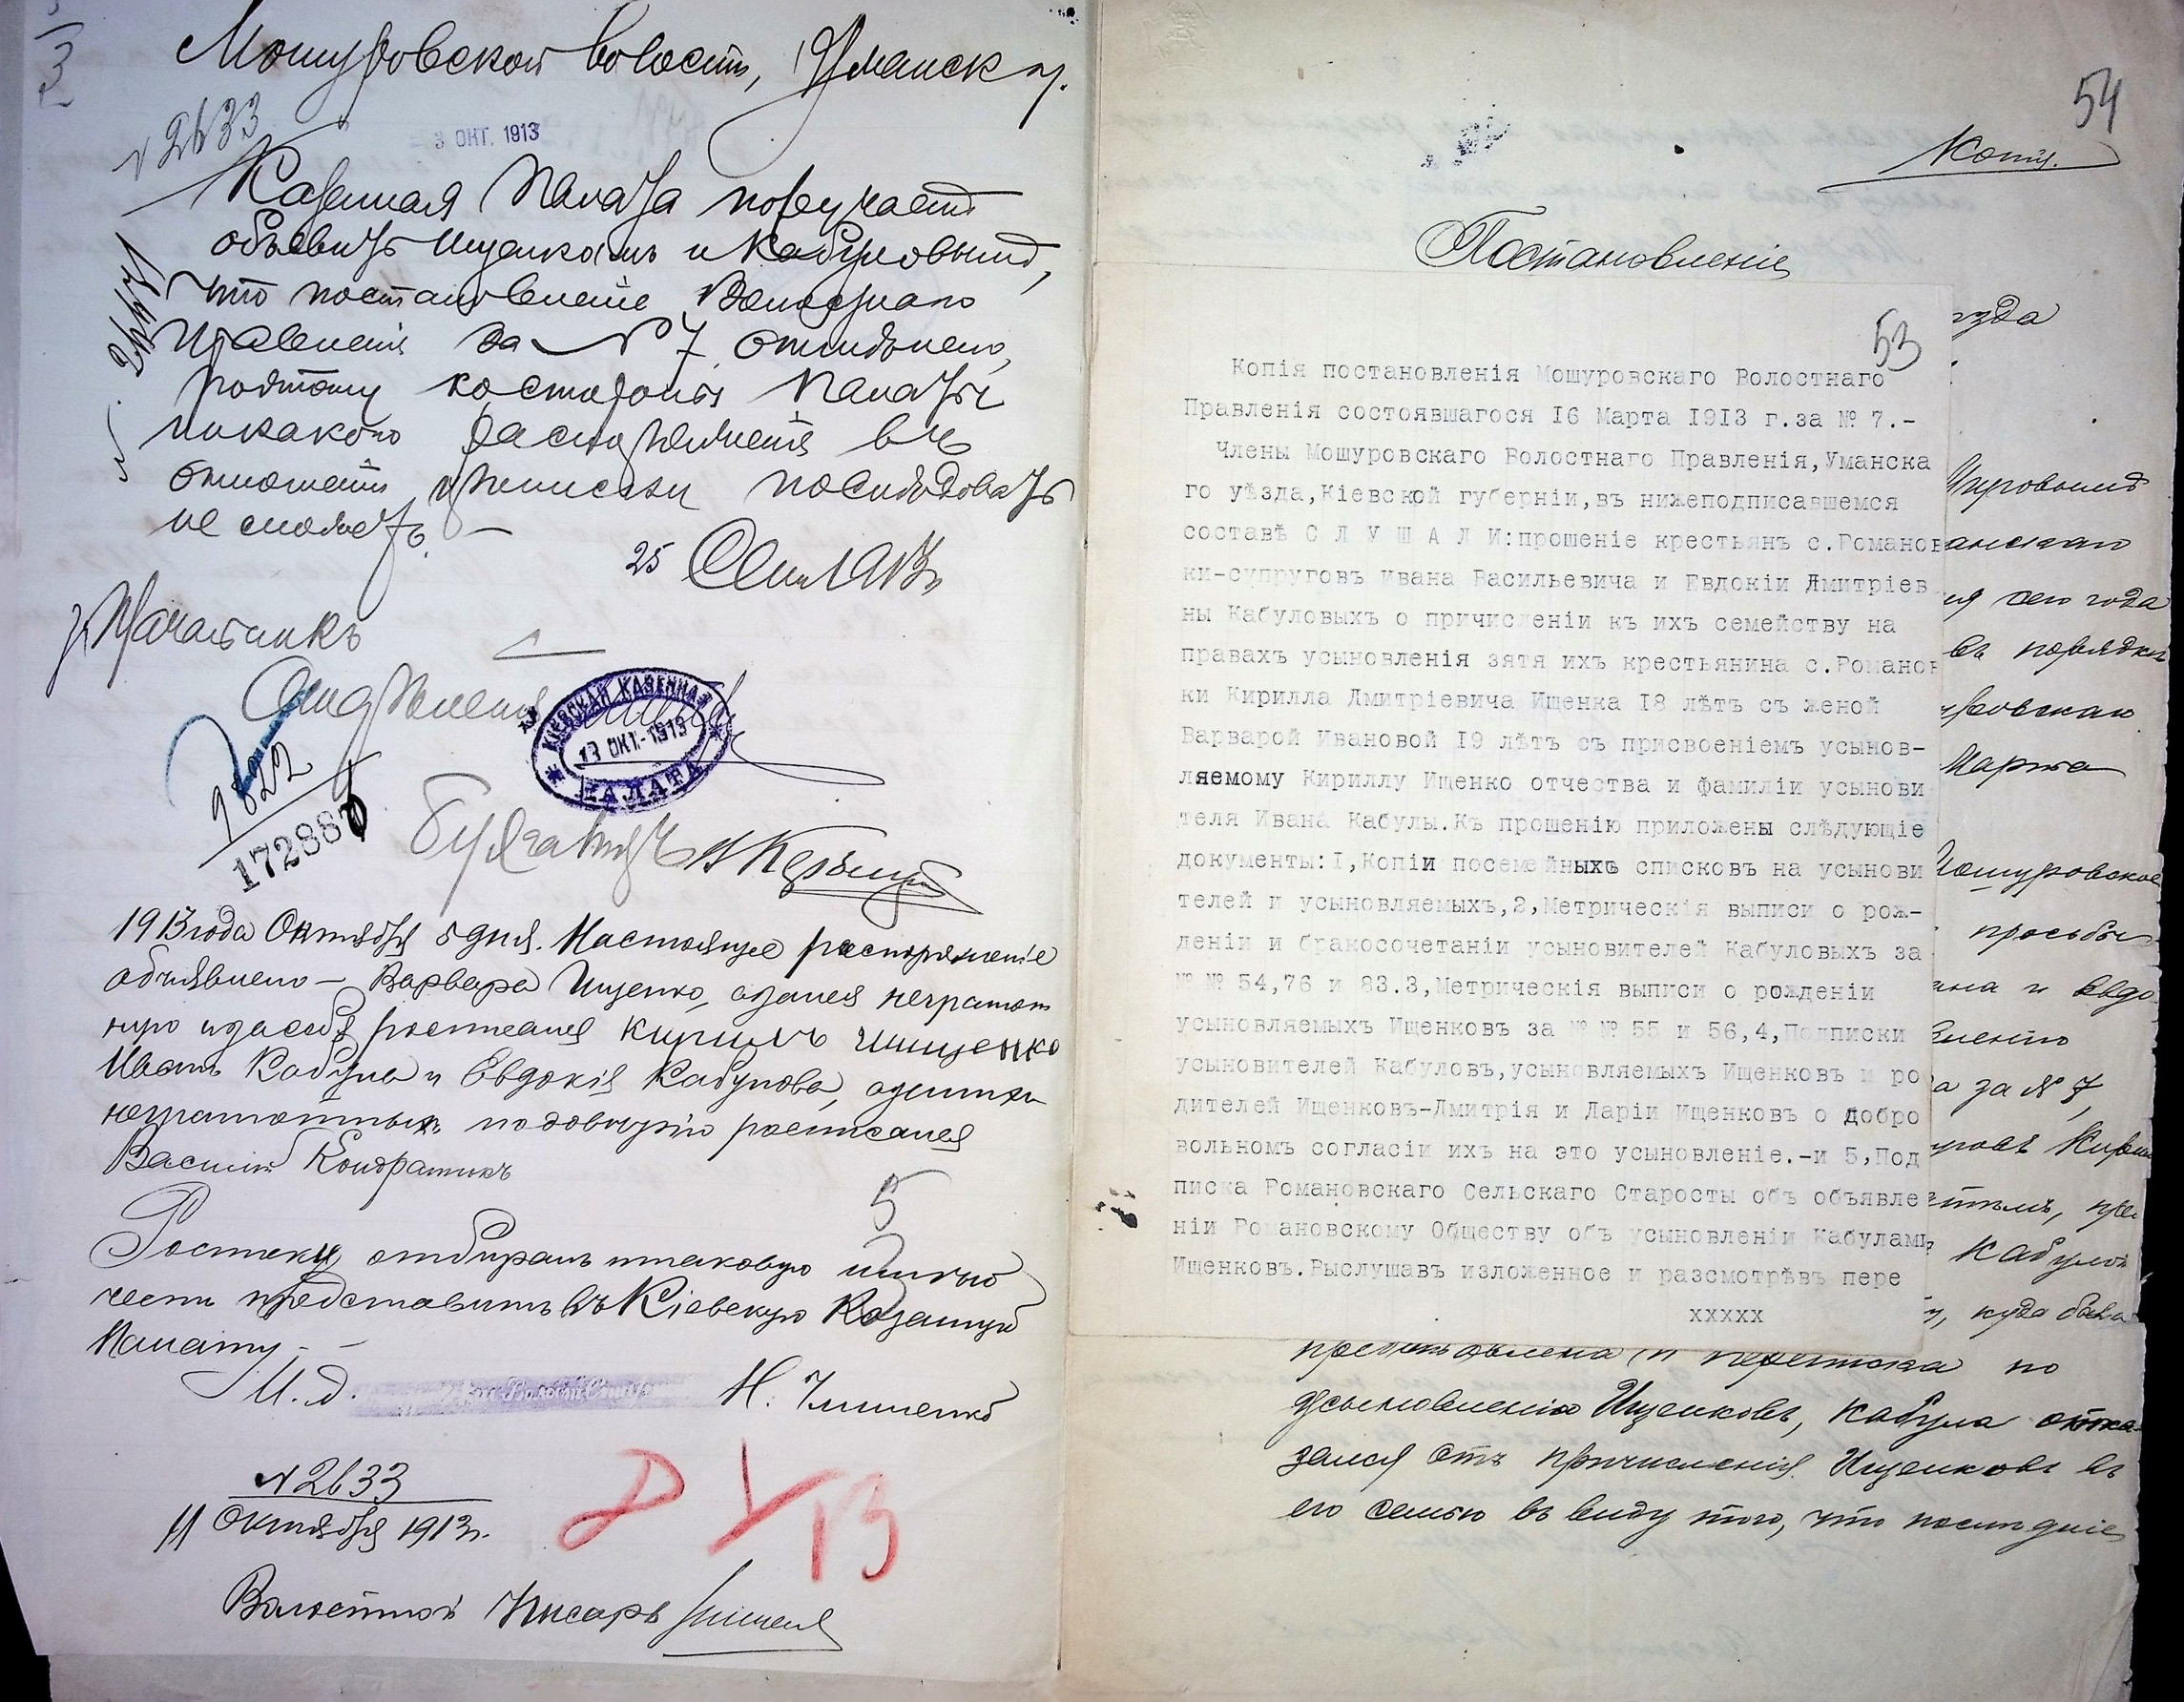 Мошуровской волости, Уманск у.
№ 2633
3 ОКТ. 1913
Казенная Палата поручаетъ
объявить Ищенкамъ и Кабуловымъ,
что постановленіе Волостнаго
Правленія за № 7 отмѣнено,
поэтому со стороны Палаты
никакого распоряженія въ
отношеніи приписки послѣдовать
не можетъ. —
25 Сент 1913 г.
Начальникъ
Отдѣленія
КІЕВСКАЯ КАЗЕННАЯ
ОКТ. 1913
ПАЛАТА
9822
17288
Бухгалтеръ
1913 года Октября 5 дня. Настоящее распоряженіе
объявлено — Варвара Ищенко, оданея неграмот
ную и за себя росписался Кирилъ Ищенко
Иванъ Кабула и Евдокія Кабулова, а за нихъ
неграмотныхъ по довѣрію росписался
Василій Кондратюкъ
5
Росписку отбиралъ и таковую имѣю
честь представить въ Кіевскую Казенную
Палату. —
И. д.
№ 2633
11 Октября 1913 г.
Волостной Писарь
54
Копія.
Постановленіе
53
Копія постановленія Мошуровскаго Волостнаго
Правленія состоявшагося I6 Марта I9I3 г.за № 7.-
Члены Мошуровскаго Волостнаго Правленія,Уманска
го уѣзда,Кіевской губерніи,въ нижеподписавшемся
составѣ С Л У Ш А Л И:прошеніе крестьянъ с.Романов
ки-супруговъ Ивана Васильевича и Евдокіи Дмитріев
ны Кабуловыхъ о причисленіи къ ихъ семейству на
правахъ усыновленія зятя ихъ крестьянина с.Романов
ки Кирилла Дмитріевича Ищенка I8 лѣтъ съ женой
Варварой Ивановой I9 лѣтъ съ присвоеніемъ усынов-
ляемому Кириллу Ищенко отчества и фамиліи усынови
теля Ивана Кабулы.Къ прошенію приложены слѣдующіе
документы:I,Копіи посемейныхъ списковъ на усынови
телей и усыновляемыхъ,2,Метрическія выписи о рож-
деніи и бракосочетаніи усыновителей Кабуловыхъ за
№ № 54,76 и 83.3,Метрическія выписи о рожденіи
усыновляемыхъ Ищенковъ за № № 55 и 56,4,Подписки
усыновителей Кабуловъ,усыновляемыхъ Ищенковъ и ро
дителей Ищенковъ-Дмитрія и Даріи Ищенковъ о добро
вольномъ согласіи ихъ на это усыновленіе.-и 5,Под
писка Романовскаго Сельскаго Старосты объ объявле
ніи Романовскому Обществу объ усыновленіи Кабулами
Ищенковъ.Выслушавъ изложенное и разсмотрѣвъ пере
ххххх
ія сего года
въ порядкѣ
Марта
просьбы
а за № 7,
Кабулой
, куда была
представлена и переписка по
усыновленію Ищенковъ, Кабула отка-
зался отъ причисленія Ищенковъ въ
его семью въ виду того, что послѣдніе